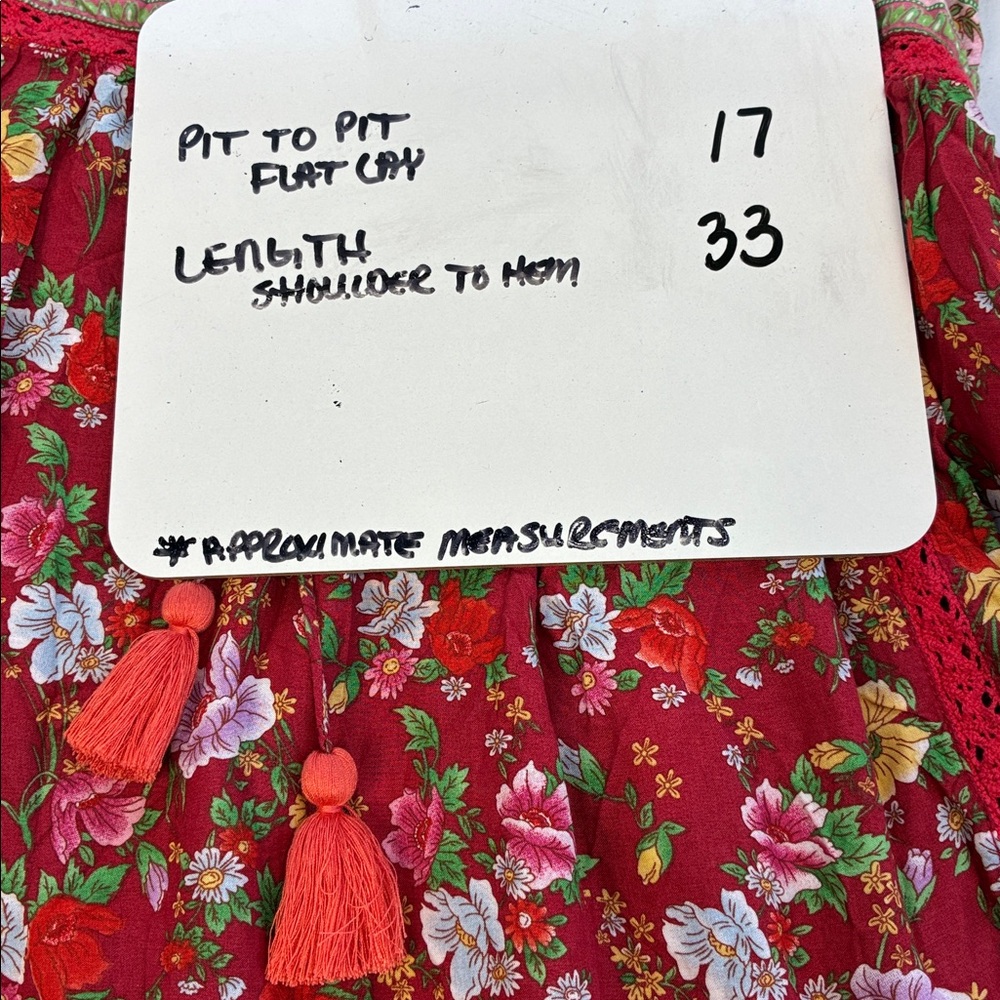 PIT TO PIT 17
FLAT LAY
LENGTH 33
SHOULDER TO HEM
* APPROXIMATE MEASUREMENTS